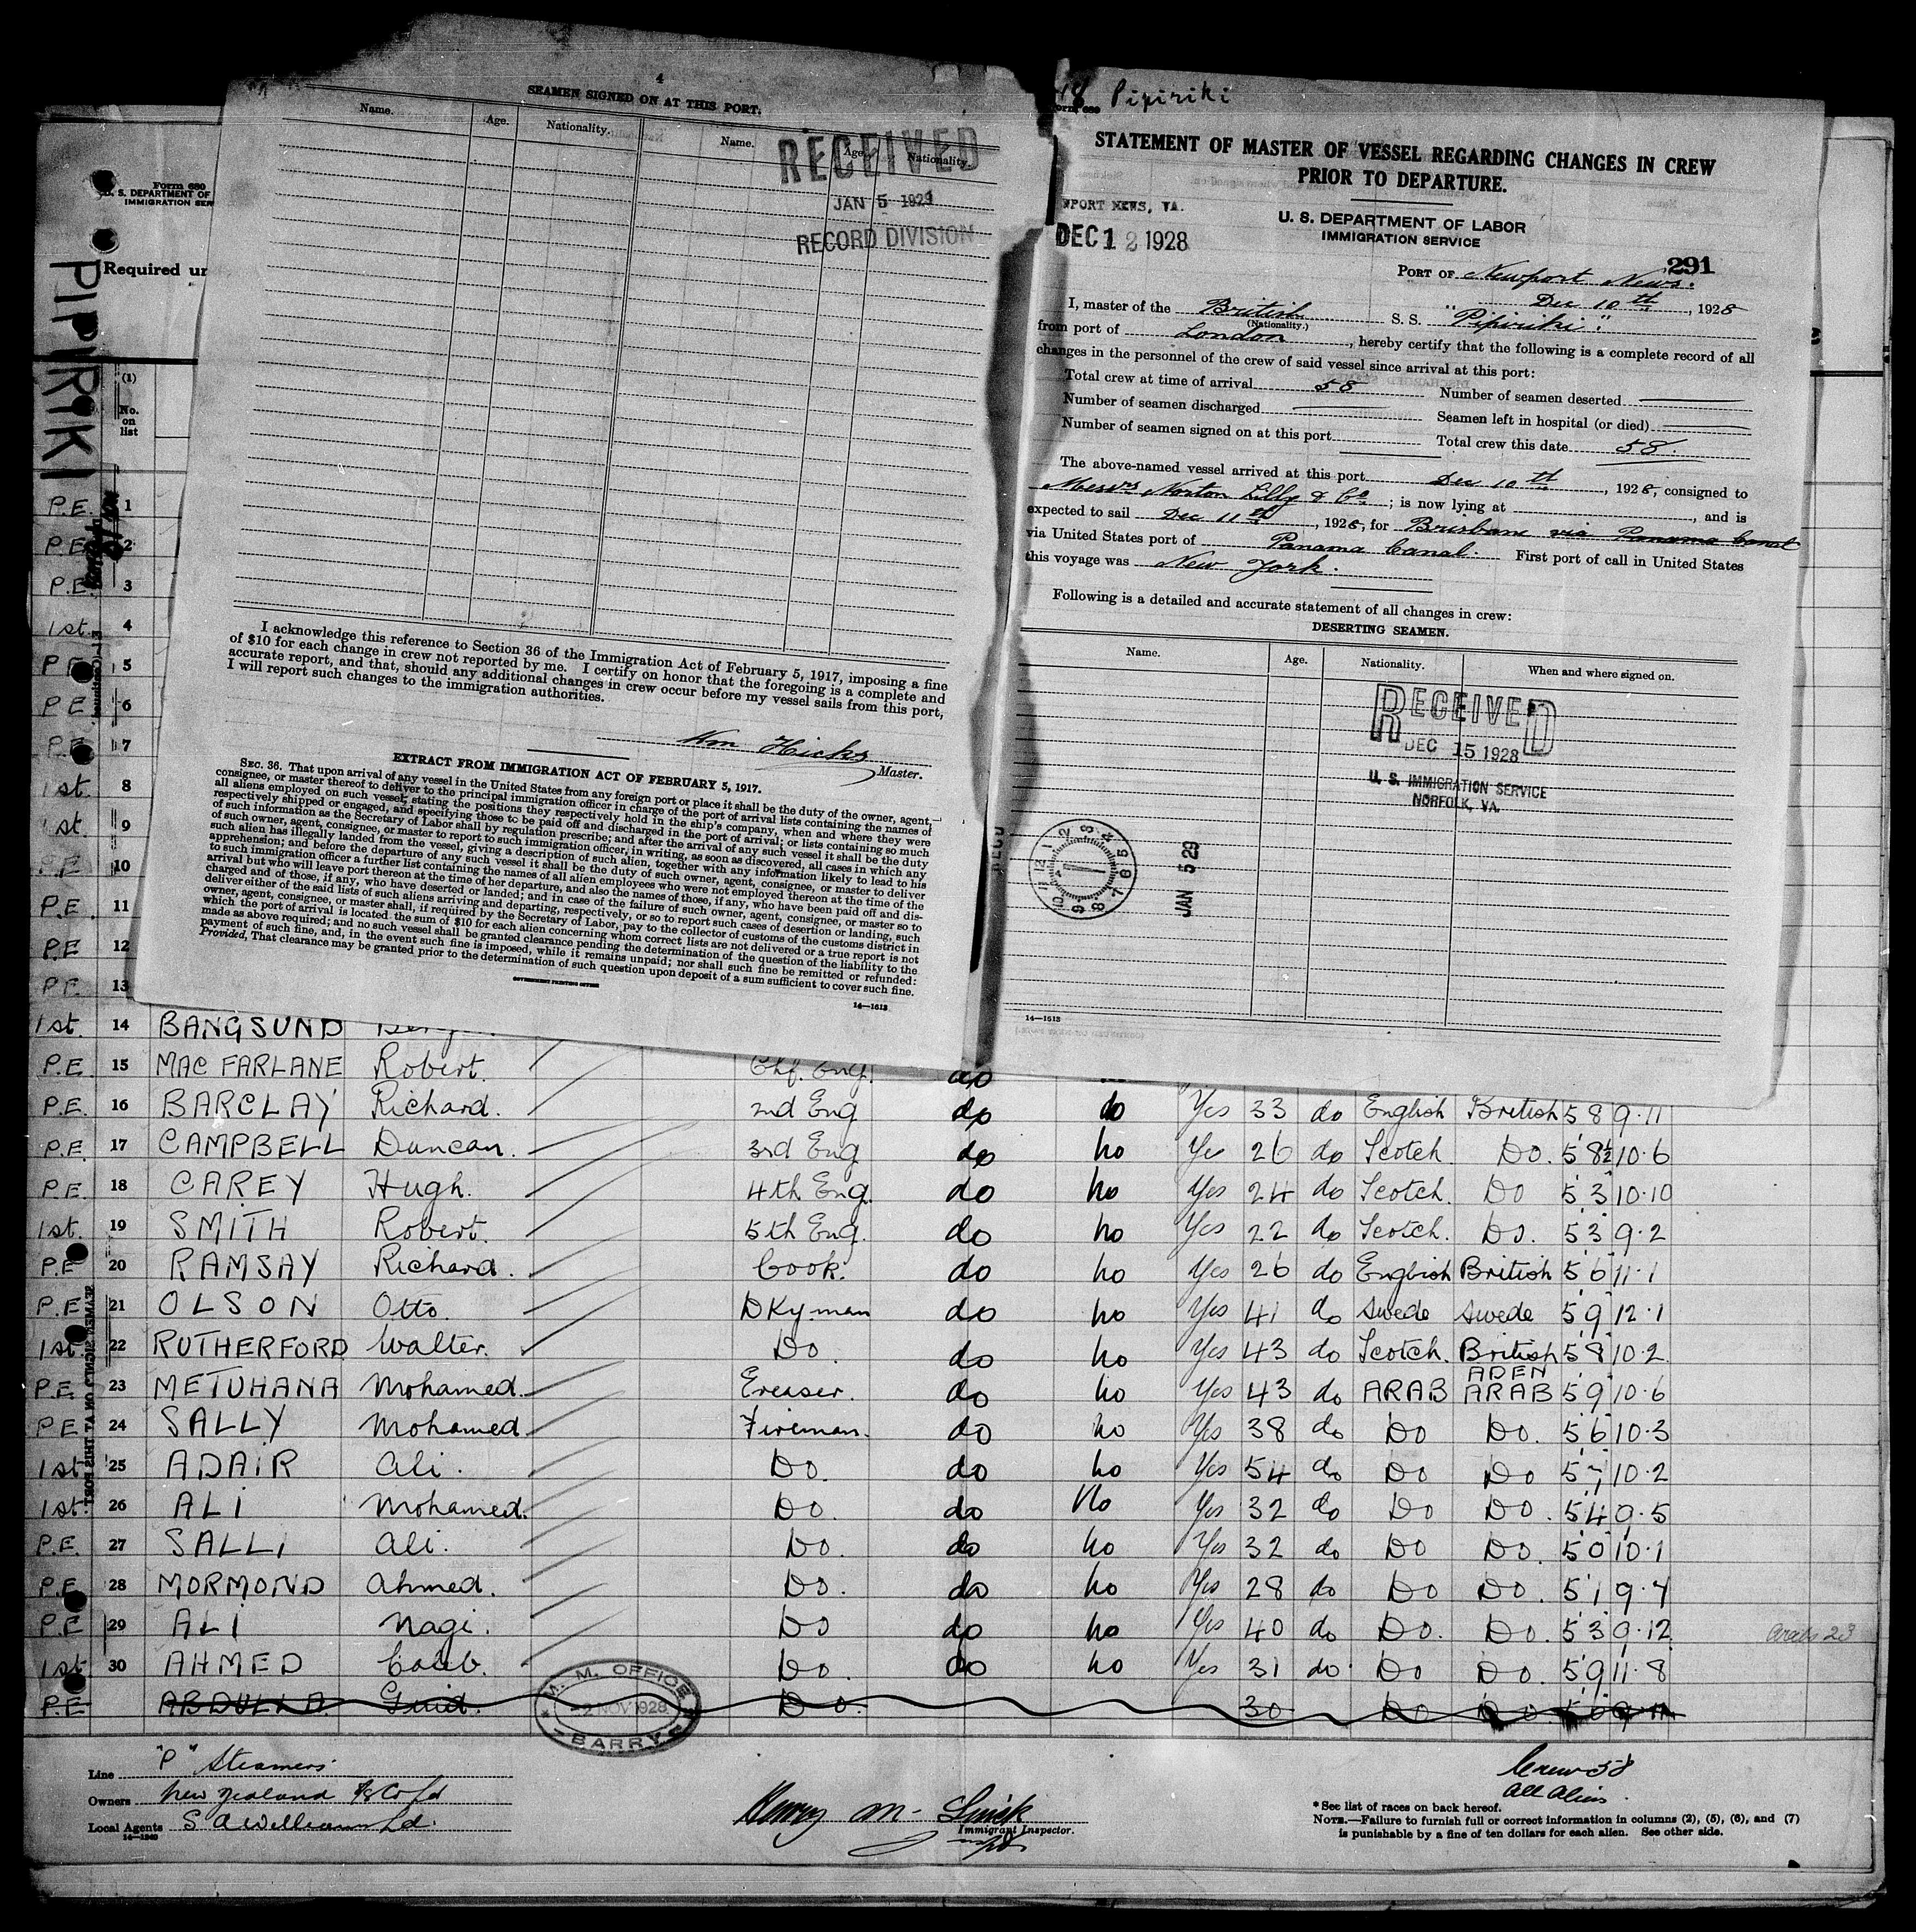 4
SEAMEN SIGNED ON AT THIS PORT.
Name. Age. Nationality. Name. Age. Nationality.
RECEIVED
JAN 5 1929
RECORD DIVISION
I acknowledge this reference to Section 36 of the Immigration Act of February 5, 1917, imposing a fine
of $10 for each change in crew not reported by me. I certify on honor that the foregoing is a complete and
accurate report, and that, should any additional changes in crew occur before my vessel sails from this port,
I will report such changes to the immigration authorities.
Wm Hicks
Master.
EXTRACT FROM IMMIGRATION ACT OF FEBRUARY 5, 1917.
SEC. 36. That upon arrival of any vessel in the United States from any foreign port or place it shall be the duty of the owner, agent,
consignee, or master thereof to deliver to the principal immigration officer in charge of the port of arrival lists containing the names of
all aliens employed on such vessel, stating the positions they respectively hold in the ship's company, when and where they were
respectively shipped or engaged, and specifying those to be paid off and discharged in the port of arrival; or lists containing so much
of such information as the Secretary of Labor shall by regulation prescribe; and after the arrival of any such vessel it shall be the duty
of such owner, agent, consignee, or master to report to such immigration officer, in writing, as soon as discovered, all cases in which any
such alien has illegally landed from the vessel, giving a description of such alien, together with any information likely to lead to his
apprehension; and before the departure of any such vessel it shall be the duty of such owner, agent, consignee, or master to deliver
to such immigration officer a further list containing the names of all alien employees who were not employed thereon at the time of the
arrival but who will leave port thereon at the time of her departure, and also the names of those, if any, who have been paid off and dis-
charged and of those, if any, who have deserted or landed; and in case of the failure of such owner, agent, consignee, or master so to
deliver either of the said lists of such aliens arriving and departing, respectively, or so to report such cases of desertion or landing, such
owner, agent, consignee, or master shall, if required by the Secretary of Labor, pay to the collector of customs of the customs district in
which the port of arrival is located the sum of $10 for each alien concerning whom correct lists are not delivered or a true report is not
made as above required; and no such vessel shall be granted clearance pending the determination of the question of the liability to the
payment of such fine, and, in the event such fine is imposed, while it remains unpaid; nor shall such fine be remitted or refunded:
Provided, That clearance may be granted prior to the determination of such question upon deposit of a sum sufficient to cover such fine.
GOVERNMENT PRINTING OFFICE
14—1613
Pipiriki
STATEMENT OF MASTER OF VESSEL REGARDING CHANGES IN CREW
PRIOR TO DEPARTURE.
WPORT NEWS, VA.
DEC 12 1928
U. S. DEPARTMENT OF LABOR
IMMIGRATION SERVICE
291
PORT OF Newport News.
Dec 10th, 1928
I, master of the British S. S. "Pipiriki"
(Nationality.)
from port of London, hereby certify that the following is a complete record of all
changes in the personnel of the crew of said vessel since arrival at this port:
Total crew at time of arrival 58 Number of seamen deserted
Number of seamen discharged Seamen left in hospital (or died)
Number of seamen signed on at this port Total crew this date 58.
The above-named vessel arrived at this port Dec 10th, 1928, consigned to
Messrs Norton Lilly & Co; is now lying at , and is
expected to sail Dec 11th, 1928, for Brisbane via Panama Canal
via United States port of Panama Canal. First port of call in United States
this voyage was New York.
Following is a detailed and accurate statement of all changes in crew:
DESERTING SEAMEN.
Name. Age. Nationality. When and where signed on.
RECEIVED
DEC 15 1928
U. S. IMMIGRATION SERVICE
NORFOLK, VA.
JAN 5 29
14—1613
Form 680
U. S. DEPARTMENT OF
IMMIGRATION SER
Required un
PIPIRIKI
(1)
No.
on
list
P.E. 1
P.E. 2
P.E. 3
1st. 4
P.E. 5
P.E 6
P.E. 7
1st. 8
1st. 9
P.E. 10
P.E. 11
P.E 12
P.E. 13
1st. 14 BANGSUND
P.E. 15 MAC FARLANE Robert. Chf. Eng. do
P.E. 16 BARCLAY Richard. 2nd Eng do do Yes 33 do English British 5 8 9·11
P.E. 17 CAMPBELL Duncan. 3rd Eng do no Yes 26 do Scotch Do. 5 8½ 10·6
P.E. 18 CAREY Hugh. 4th Eng. do no Yes 24 do Scotch. Do 5 3 10·10
1st. 19 SMITH Robert. 5th Eng. do no Yes 22 do Scotch. Do. 5 3 9·2
P.E 20 RAMSAY Richard. Cook. do no Yes 26 do English British 5 6 11·1
P.E. 21 OLSON Otto. DKyman do no Yes 41 do Swede Swede 5 9 12·1
1st. 22 RUTHERFORD Walter. Do. do no Yes 43 do Scotch. British 5 8 10·2
P.E. 23 METUHANA Mohamed. Greaser. do no Yes 43 do ARAB ADEN ARAB 5 9 10·6
P.E. 24 SALLY Mohamed Fireman. do no Yes 38 do Do Do. 5 6 10·3
1st 25 ADAIR Ali. Do. do no Yes 54 do Do Do 5 7 10·2
1st. 26 ALI Mohamed. Do. do No Yes 32 do Do Do. 5 4 9·5
P.E. 27 SALLI Ali. Do. do no Yes 32 do Do Do. 5 0 10·1
P.E 28 MORMOND Ahmed. Do. do no Yes 28 do Do Do. 5 1 9·4
P.E 29 ALI Nagi. Do do no Yes 40 do Do. Do. 5 3 9·12 Arabs 23
1st. 30 AHMED Do. do no Yes 31 do Do Do. 5 9 11·8
P.E ABDULLA Do. 30 Do Do.
SEAMEN SIGNED ON AT THIS PORT
M. M. OFFICE
2 NOV 1928
BARRY
Line "P" Steamers
Owners New Zealand
Local Agents S A Williams Ld.
14—1240
Immigrant Inspector.
Crew 58
All Alien.
* See list of races on back hereof.
NOTE.—Failure to furnish full or correct information in columns (2), (5), (6), and (7)
is punishable by a fine of ten dollars for each alien. See other side.